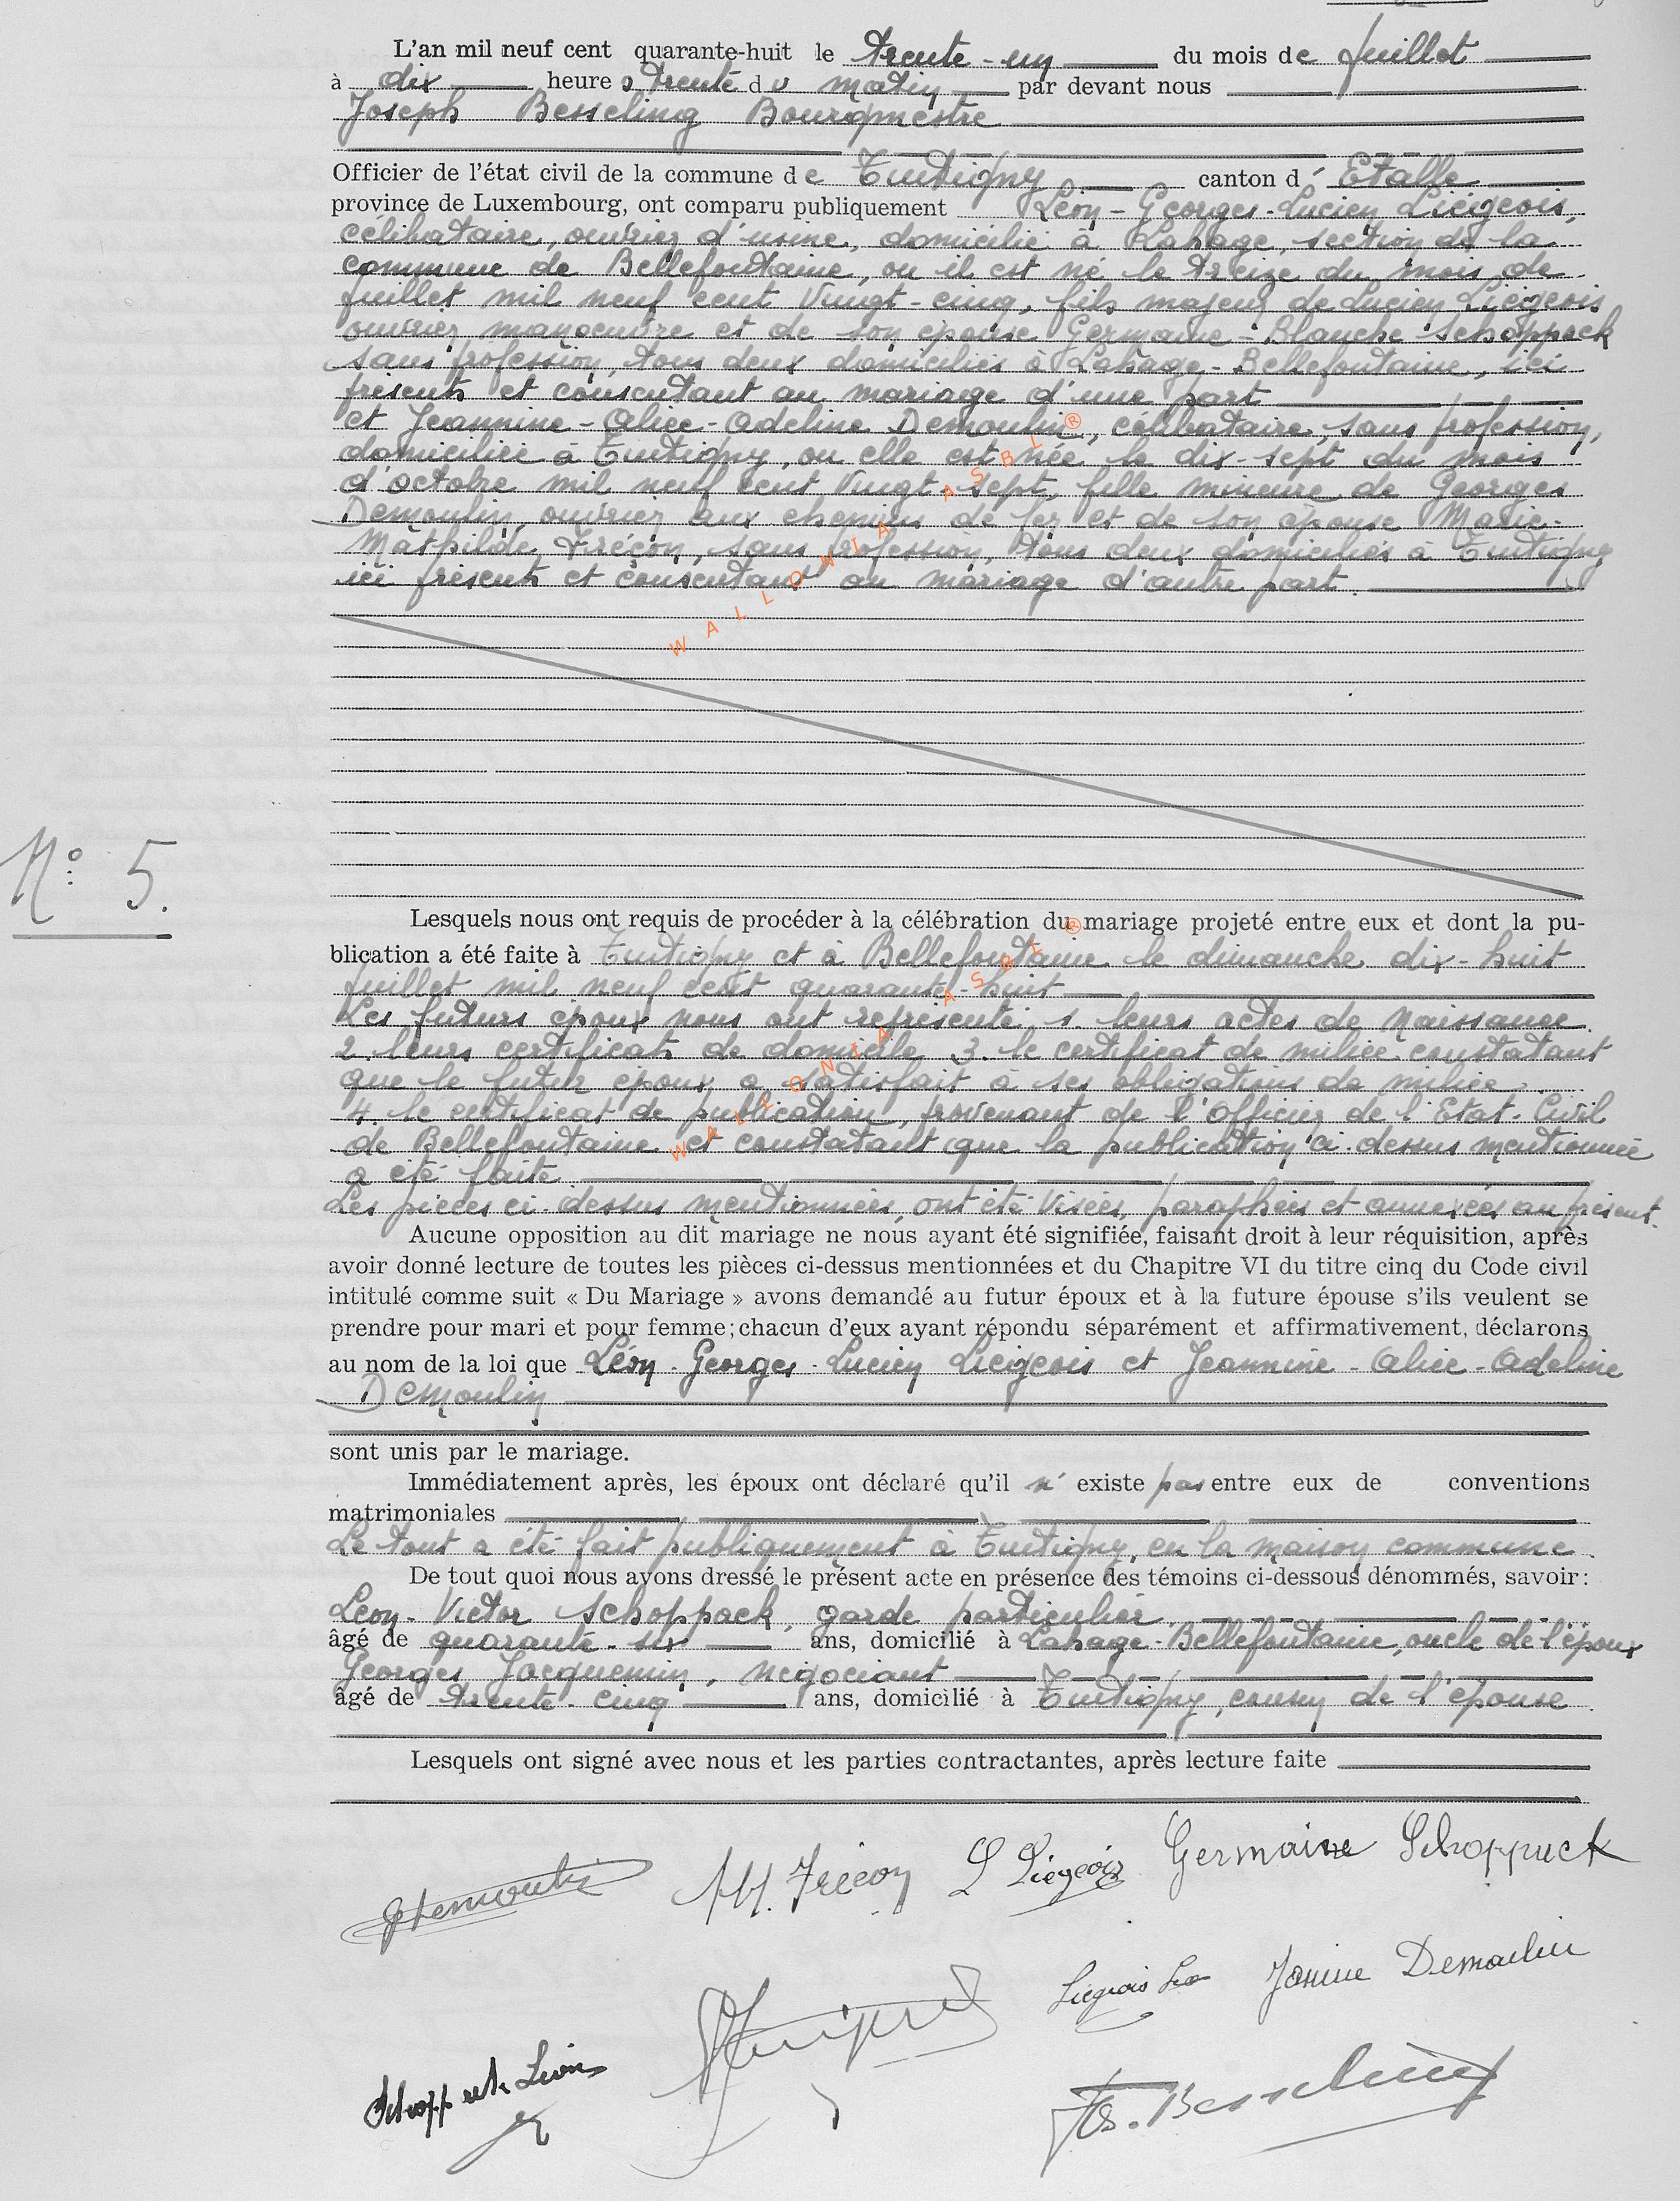 L'an mil neuf cent quarante-huit le trente-un du mois de juillet
à dix heures trente du matin par devant nous
Joseph Besseling Bourgmestre
Officier de l'état civil de la commune de Tintigny canton d'Etalle
province de Luxembourg, ont comparu publiquement Léon-Georges-Lucien Liégeois,
célibataire, ouvrier d'usine, domicilié à Lahage, section de la
commune de Bellefontaine, ou il est né le treize du mois de
juillet mil neuf cent vingt-cinq, fils majeur de Lucien Liégeois
ouvrier manoeuvre et de son épouse Germaine-Blanche Schoppack
sans profession, tous deux domiciliés à Lahage-Bellefontaine, ici
présents et consentant au mariage d'une part
et Jeannine-Alice-Adeline Demoulin, célibataire, sans profession,
domiciliée à Tintigny, ou elle est née le dix-sept du mois
d'octobre mil neuf cent vingt-sept, fille mineure de Georges
Demoulin, ouvrier aux chemins de fer et de son épouse Marie-
Mathilde Freçon, sans profession, tous deux domiciliés à Tintigny
ici présents et consentant au mariage d'autre part.
WALLONIA ASBL ®
N° 5.
Lesquels nous ont requis de procéder à la célébration du mariage projeté entre eux et dont la pu-
blication a été faite à Tintigny et à Bellefontaine le dimanche dix-huit
juillet mil neuf cent quarante-huit
Les futurs époux nous ont représenté: 1. leurs actes de naissance.
2 leurs certificats de domicile 3. le certificat de milice constatant
que le futur époux a satisfait à ses obligations de milice.
4. le certificat de publication, provenant de l'Officier de l'Etat-Civil
de Bellefontaine et constatant que la publication ci-dessus mentionnée
a été faite
WALLONIA ASBL ®
Les pièces ci-dessus mentionnées, ont été visées, paraphées et annexées au présent.
Aucune opposition au dit mariage ne nous ayant été signifiée, faisant droit à leur réquisition, après
avoir donné lecture de toutes les pièces ci-dessus mentionnées et du Chapitre VI du titre cinq du Code civil
intitulé comme suit « Du Mariage » avons demandé au futur époux et à la future épouse s'ils veulent se
prendre pour mari et pour femme; chacun d'eux ayant répondu séparément et affirmativement, déclarons
au nom de la loi que Léon-Georges-Lucien Liégeois et Jeannine-Alice-Adeline
Demoulin
sont unis par le mariage.
Immédiatement après, les époux ont déclaré qu'il n'existe pas entre eux de conventions
matrimoniales
Le tout a été fait publiquement à Tintigny, en la maison commune.
De tout quoi nous avons dressé le présent acte en présence des témoins ci-dessous dénommés, savoir:
Léon-Victor Schoppack, garde particulier
âgé de quarante-six ans, domicilié à Lahage-Bellefontaine, oncle de l'époux
Georges Jacquemin, négociant
âgé de trente-cinq ans, domicilié à Tintigny, cousin de l'épouse.
Lesquels ont signé avec nous et les parties contractantes, après lecture faite
GDemoulin M. Frécon L Liégeois Germaine Schoppack
Liégeois Léo Janine Demoulin
Schoppack Léon
Jos. Besseling